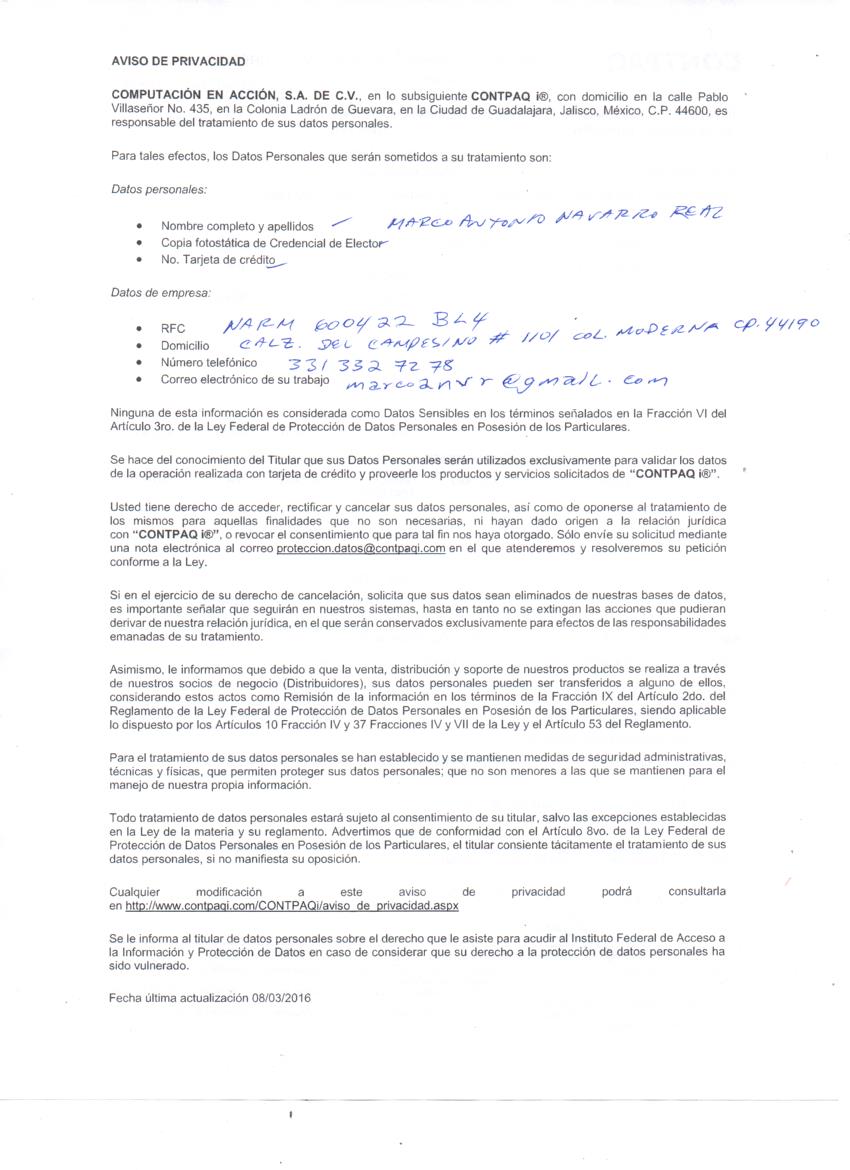 AVISO DE PRIVACIDAD
COMPUTACIÓN EN ACCIÓN, S.A. DE C.V., en lo subsiguiente CONTPAQ i®, con domicilio en la calle Pablo
Villaseñor No. 435, en la Colonia Ladrón de Guevara, en la Ciudad de Guadalajara, Jalisco, México, C.P. 44600, es
responsable del tratamiento de sus datos personales.
Para tales efectos, los Datos Personales que serán sometidos a su tratamiento son:
Datos personales:
• Nombre completo y apellidos MARCO ANTONIO NAVARRO REAL
• Copia fotostática de Credencial de Elector
• No. Tarjeta de crédito
Datos de empresa:
• RFC NARM 600422 BL4
• Domicilio CALZ. DEL CAMPESINO # 1101 COL. MODERNA CP. 44190
• Número telefónico 331 332 72 78
• Correo electrónico de su trabajo marcoanvr@gmail.com
Ninguna de esta información es considerada como Datos Sensibles en los términos señalados en la Fracción VI del
Artículo 3ro. de la Ley Federal de Protección de Datos Personales en Posesión de los Particulares.
Se hace del conocimiento del Titular que sus Datos Personales serán utilizados exclusivamente para validar los datos
de la operación realizada con tarjeta de crédito y proveerle los productos y servicios solicitados de "CONTPAQ i®".
Usted tiene derecho de acceder, rectificar y cancelar sus datos personales, así como de oponerse al tratamiento de
los mismos para aquellas finalidades que no son necesarias, ni hayan dado origen a la relación jurídica
con "CONTPAQ i®", o revocar el consentimiento que para tal fin nos haya otorgado. Sólo envíe su solicitud mediante
una nota electrónica al correo proteccion.datos@contpaqi.com en el que atenderemos y resolveremos su petición
conforme a la Ley.
Si en el ejercicio de su derecho de cancelación, solicita que sus datos sean eliminados de nuestras bases de datos,
es importante señalar que seguirán en nuestros sistemas, hasta en tanto no se extingan las acciones que pudieran
derivar de nuestra relación jurídica, en el que serán conservados exclusivamente para efectos de las responsabilidades
emanadas de su tratamiento.
Asimismo, le informamos que debido a que la venta, distribución y soporte de nuestros productos se realiza a través
de nuestros socios de negocio (Distribuidores), sus datos personales pueden ser transferidos a alguno de ellos,
considerando estos actos como Remisión de la información en los términos de la Fracción IX del Artículo 2do. del
Reglamento de la Ley Federal de Protección de Datos Personales en Posesión de los Particulares, siendo aplicable
lo dispuesto por los Artículos 10 Fracción IV y 37 Fracciones IV y VII de la Ley y el Artículo 53 del Reglamento.
Para el tratamiento de sus datos personales se han establecido y se mantienen medidas de seguridad administrativas,
técnicas y físicas, que permiten proteger sus datos personales; que no son menores a las que se mantienen para el
manejo de nuestra propia información.
Todo tratamiento de datos personales estará sujeto al consentimiento de su titular, salvo las excepciones establecidas
en la Ley de la materia y su reglamento. Advertimos que de conformidad con el Artículo 8vo. de la Ley Federal de
Protección de Datos Personales en Posesión de los Particulares, el titular consiente tácitamente el tratamiento de sus
datos personales, si no manifiesta su oposición.
Cualquier modificación a este aviso de privacidad podrá consultarla
en http://www.contpaqi.com/CONTPAQi/aviso_de_privacidad.aspx
Se le informa al titular de datos personales sobre el derecho que le asiste para acudir al Instituto Federal de Acceso a
la Información y Protección de Datos en caso de considerar que su derecho a la protección de datos personales ha
sido vulnerado.
Fecha última actualización 08/03/2016